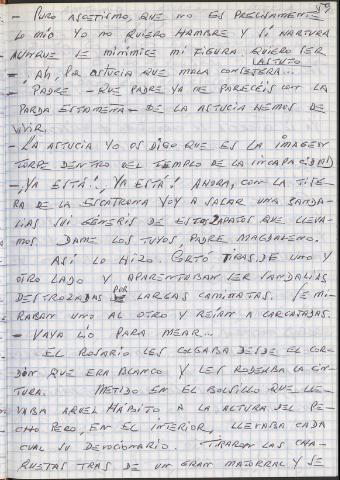 59
- PURO ASCETISMO, QUE NO ES PRECISAMENTE
LO MIO YO NO QUIERO HAMBRE Y SÍ HARTURA
AUNQUE SE MINIMICE MI FIGURA QUIERO SER
ASTUTO
- ¡Ah, la ASTUCIA QUE MALA CONSEJERA...
- PADRE - QUE PADRE YA ME PARECÉIS CON LA
PARDA ESTAMEÑA - DE LA ASTUCIA HEMOS DE
VIVIR.
- LA ASTUCIA YO OS DIGO QUE ES LA IMAGEN
TORPE DENTRO DEL TEMPLO DE LA INCAPACIDAD
- ¡YA ESTÁ!, ¡YA ESTÁ! AHORA, CON LA TIJE-
RA DE LA ESCATRONA VOY A SACAR UNA SANDA-
LIAS SUI GÉNERIS DE ESTOS ZAPATOS QUE LLEVA-
MOS DAME LOS TUYOS, PADRE MAGDALENO.
ASÍ LO HIZO. CORTÓ TIRAS DE UNO Y
OTRO LADO Y APARENTABAN SER SANDALIAS
DESTROZADAS POR LARGAS CAMINATAS. SE MI-
RABAN UNO AL OTRO Y REÍAN A CARCAJADAS.
- VAYA LÍO PARA MEAR...
EL ROSARIO LES COLGABA DESDE EL COR-
DÓN QUE ERA BLANCO Y LES RODEABA LA CIN-
TURA. METIDO EN EL BOLSILLO QUE LLE-
VABA AQUEL HÁBITO A LA ALTURA DEL PE-
CHO PERO, EN EL INTERIOR, LLEVABA CADA
CUAL SU DEVOCIONARIO. TIRARON LAS CHA-
QUETAS TRAS DE UN GRAN MATORRAL Y SE